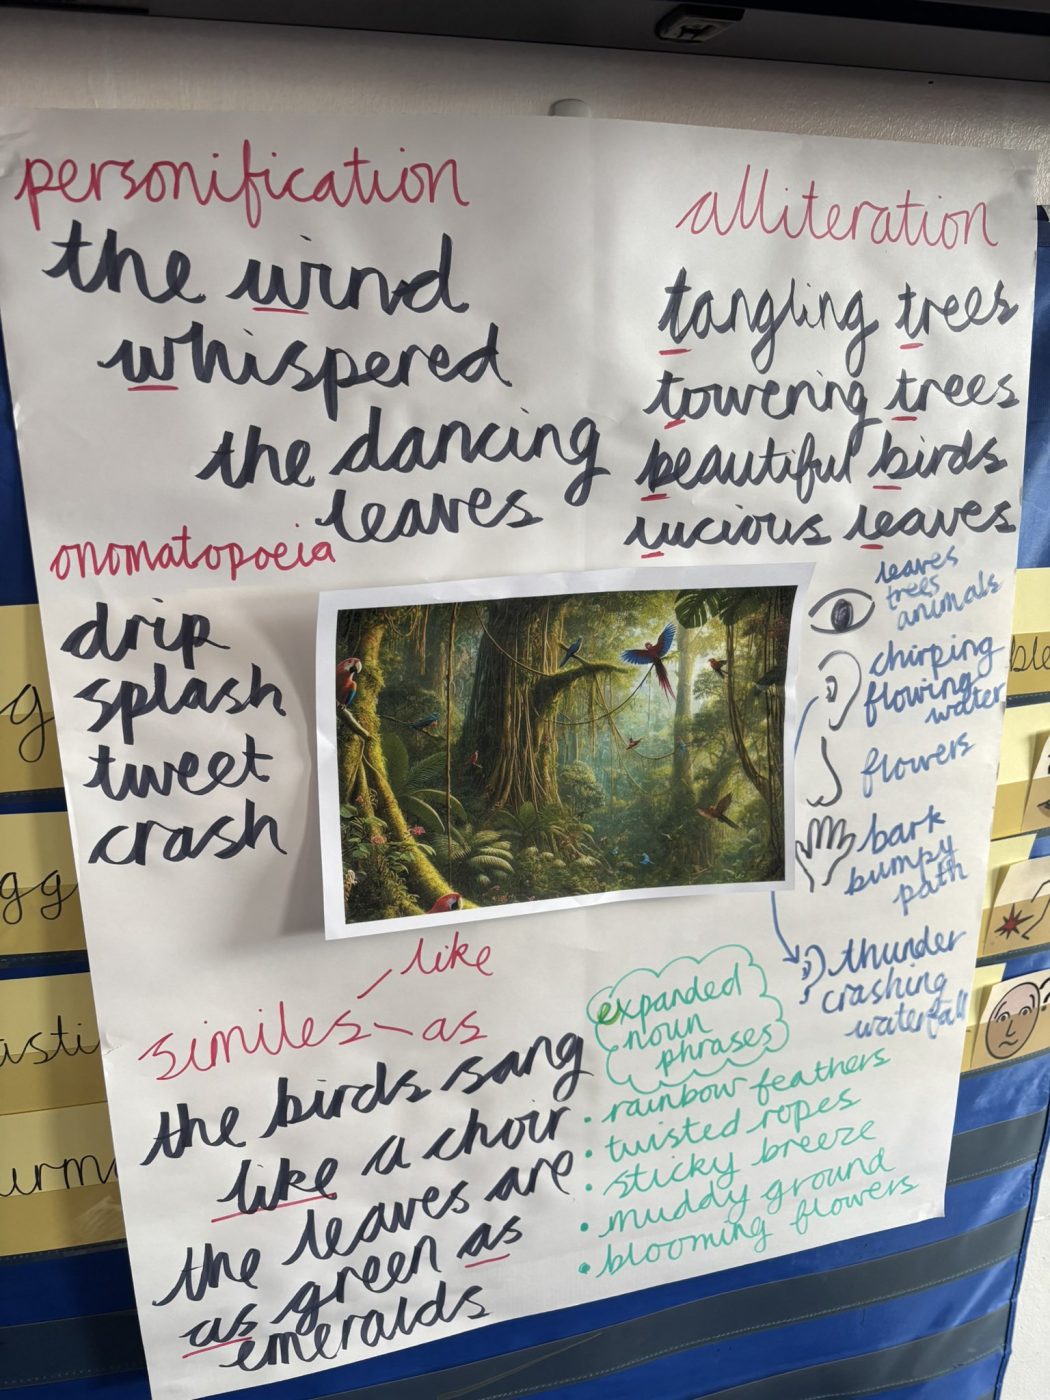 personification
the wind
whispered
the dancing
leaves
alliteration
tangling trees
towering trees
beautiful birds
lucious leaves
onomatopoeia
drip
splash
tweet
crash
leaves
trees
animals
chirping
flowing
water
flowers
bark
bumpy
path
thunder
crashing
waterfall
like
similes - as
the birds sang
like a choir
the leaves are
as green as
emeralds
expanded
noun
phrases
• rainbow feathers
• twisted ropes
• sticky breeze
• muddy ground
• blooming flowers
g
gg
asti
urm
ble